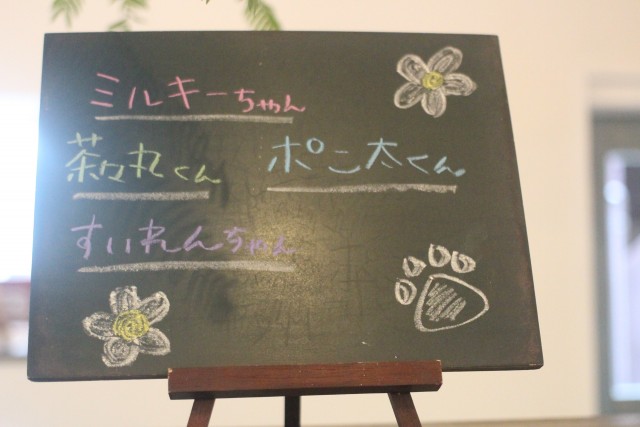 ミルキーちゃん
茶々丸くん ポン太くん
すいれんちゃん